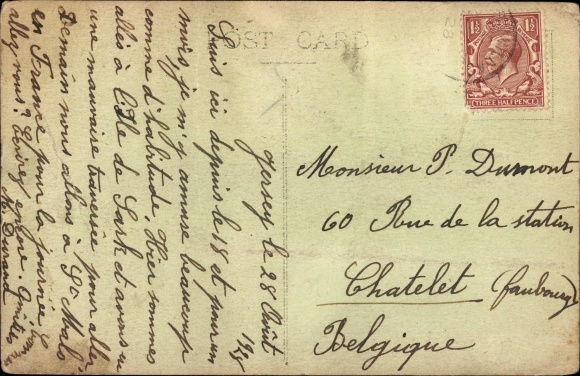 POST CARD
1½ 1½
THREE HALFPENCE
Jersey le 28 Août
1928
Suis ici depuis le 18 et pour un
mois, je m'y amuse beaucoup
comme d'habitude. Hier sommes
allés à l'Ile de Sark et avons eu
une mauvaise traversée pour aller
Demain nous allons à St Malo
en France pour la journée. Com
allez vous? Ecrivez encore. Amitiés
M. Durand
Monsieur P. Dumont
60 Rue de la station
Chatelet (faubourg)
Belgique